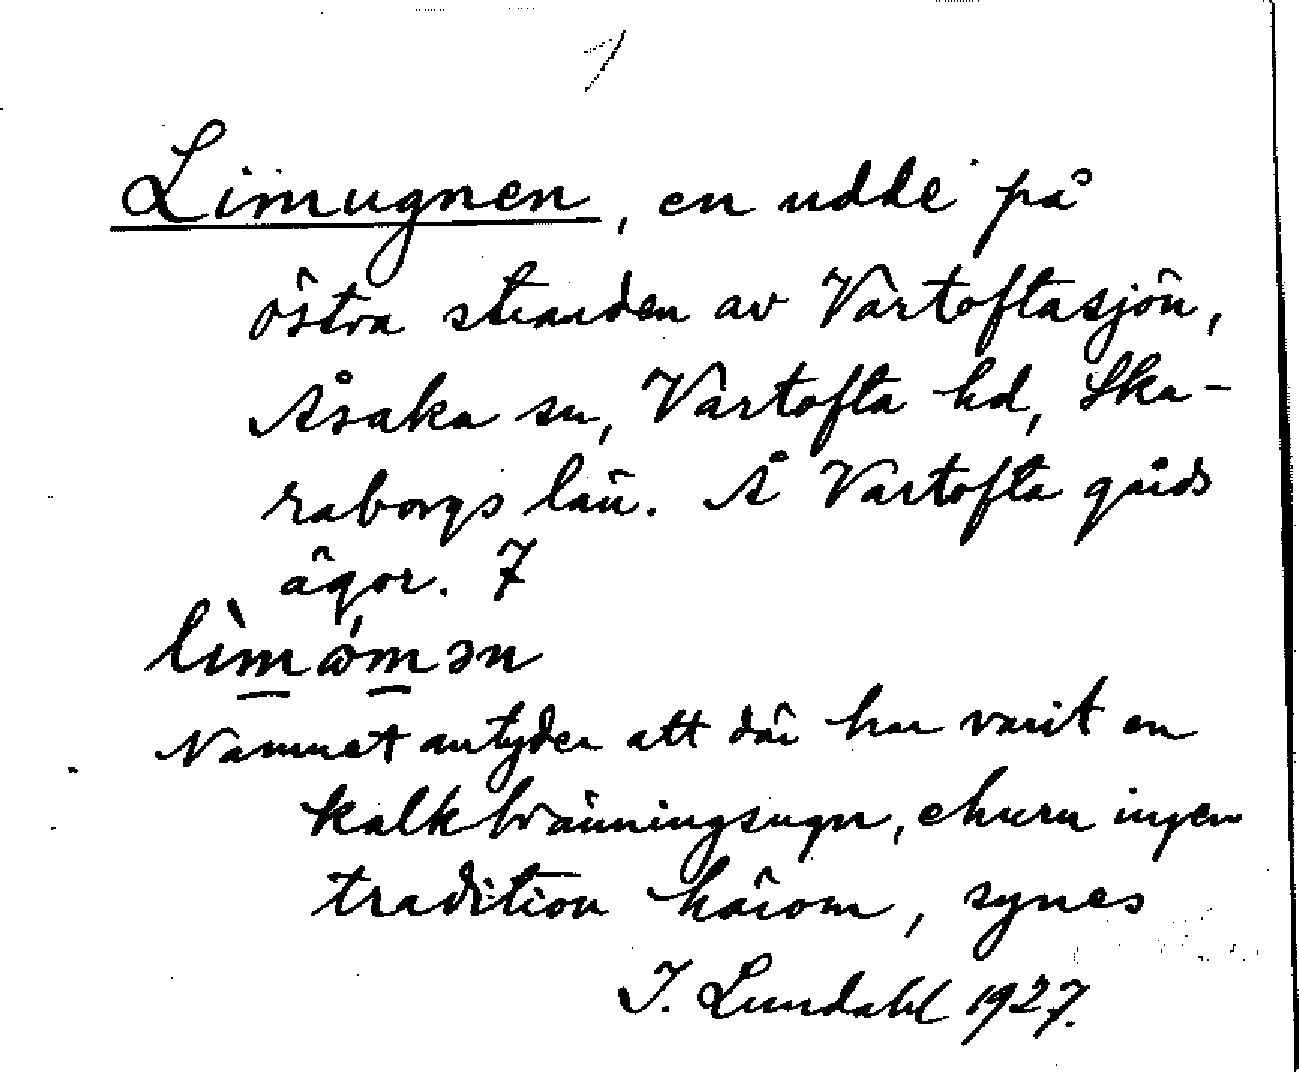 1
Limugnen, en udde på
östra stranden av Vartoftasjön,
Åsaka sn, Vartofta hd, Ska-
raborgs län. Å Vartofta gårds
ägor. 7
lìmώmən
Namnet antyder att där har varit en
kalkbränningsugn, ehuru ingen
tradition härom, synes
I. Lundahl 1927.